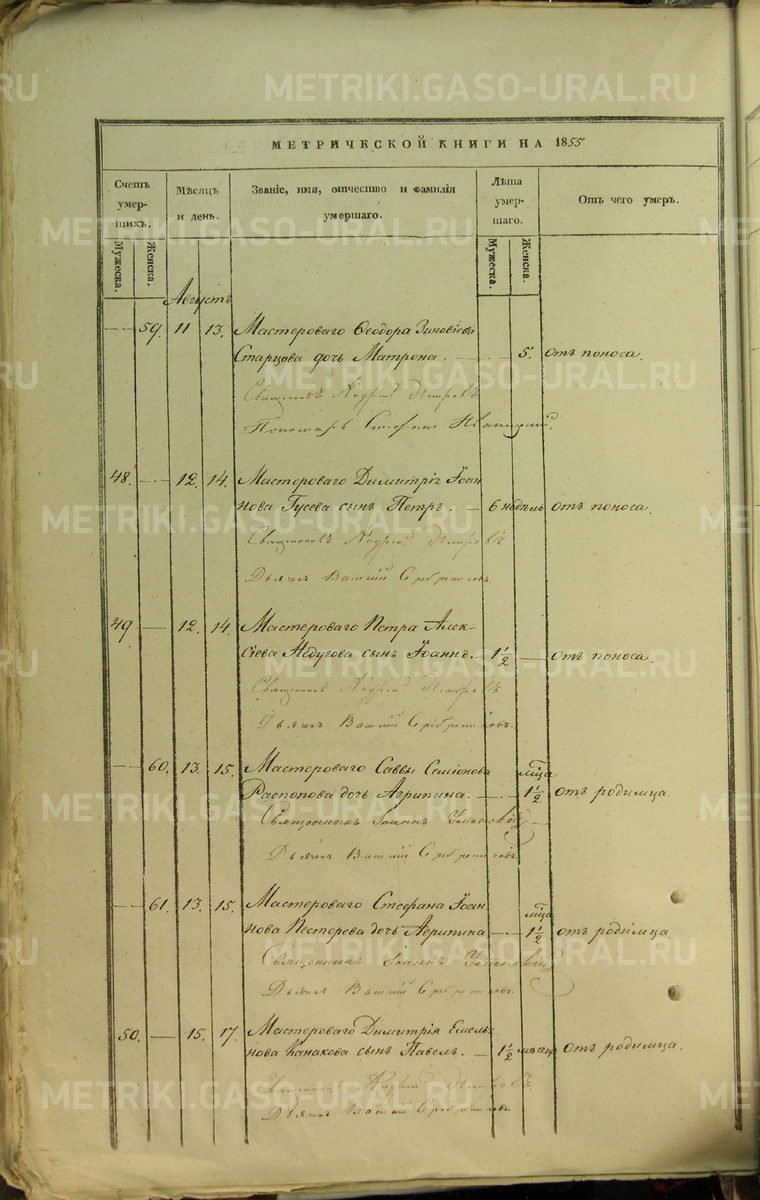 МЕТРИЧЕСКОЙ КНИГИ НА 1855
Счетъ умер- шихъ. Мѣсяцъ и день. Званіе, имя, отчество и фамилія умершаго. Лѣта умер- шаго. Отъ чего умеръ.
Мужеска. Женска. Мужеска. Женска.
Августъ
59. 11 13. Мастероваго Ѳеодора Зиновіева
Старцова дочь Матрона. 5. отъ поноса.
Священникъ Андрей
Пономарь Стефан
48. 12. 14. Мастероваго Димитрія Іоан
нова Гусева сынъ Петръ. 6 недѣль отъ поноса.
Священникъ Андрей
Дьячекъ Василій Серебренниковъ
49 12. 14. Мастероваго Петра Алек-
сіева сынъ Іоаннъ. 1 1/2 отъ поноса.
Священникъ Андрей
Дьячекъ Василій Серебренниковъ.
60. 13. 15. Мастероваго Саввы Семіонова мца
Распопова дочь Агрипина. 1 1/2 отъ родимца.
Священникъ Іоаннъ
Дьячекъ Василій Серебренниковъ.
61. 13. 15. Мастероваго Стефана Іоан- мца
нова Пестерева дочь Агрипина 1 1/2 отъ родимца
Священникъ Іоаннъ
Дьячекъ Василій Серебренниковъ.
50. 15. 17. Мастероваго Димитрія Емелья
нова Канакова сынъ Павелъ. 1 1/2 мѣсяца отъ родимца.
Священникъ Андрей
Дьячекъ Василій Серебренниковъ
METRIKI.GASO-URAL.RU